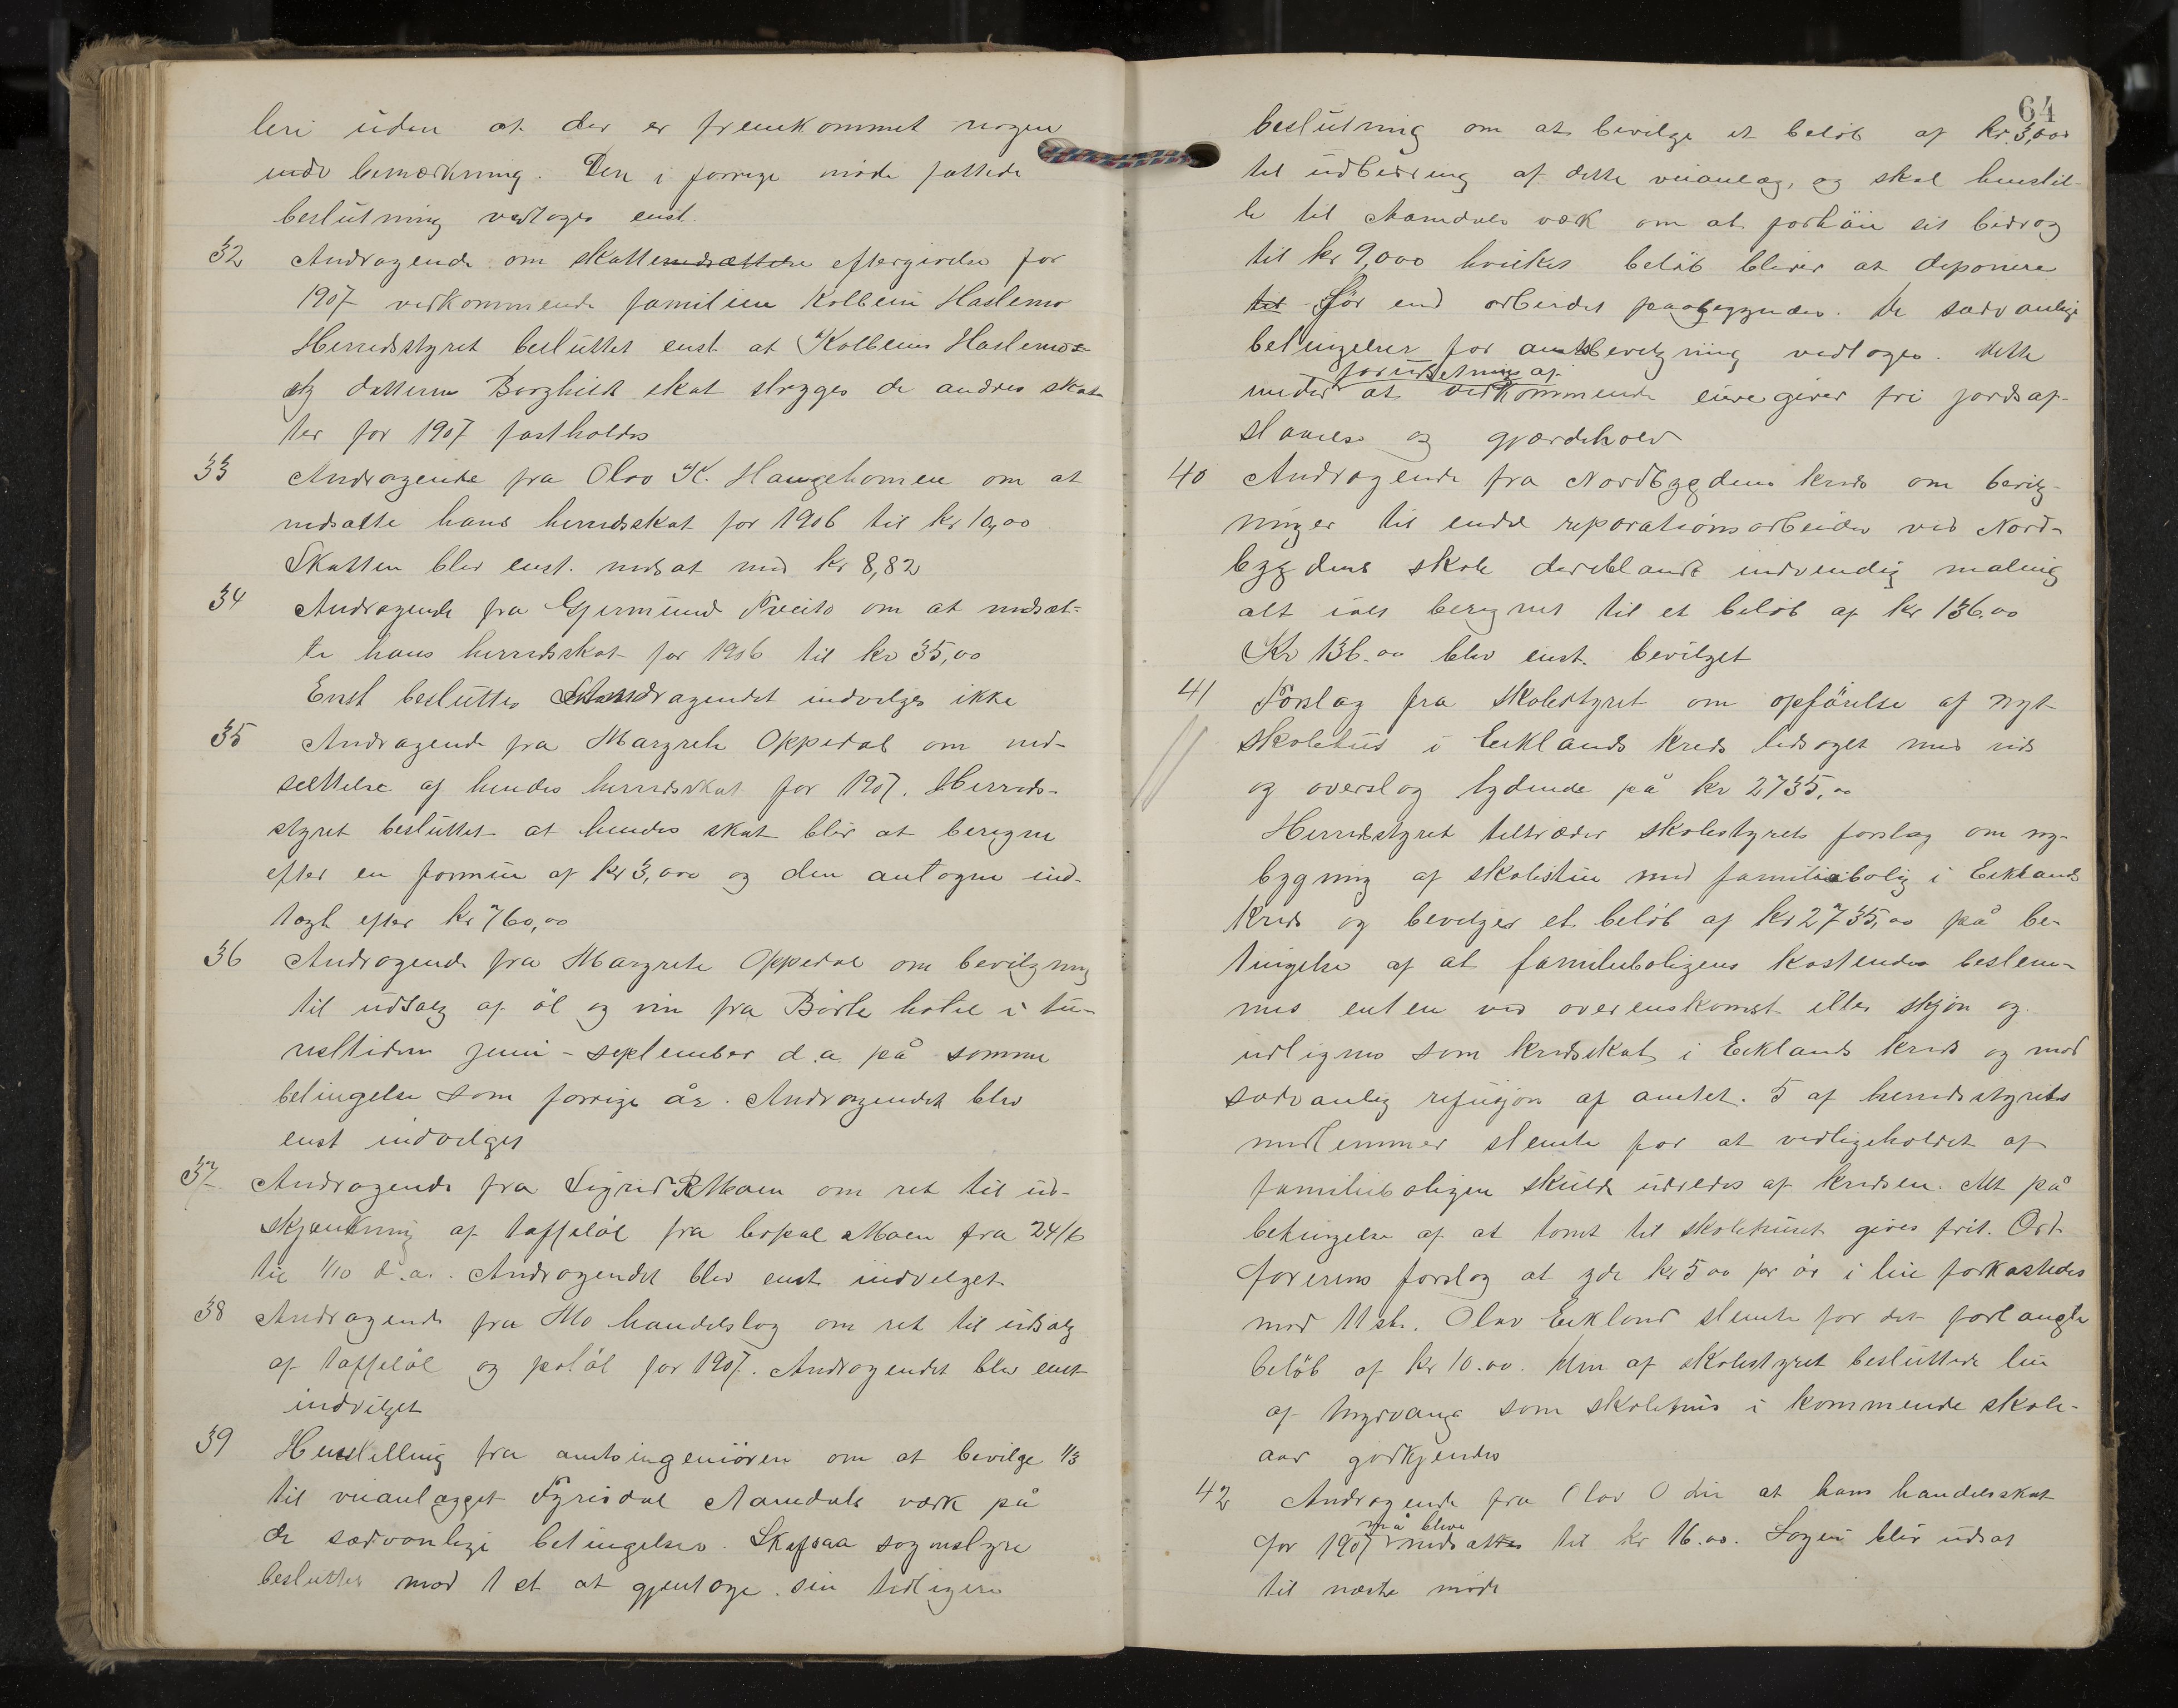 leri uden at der er fremkommet nogen
endr bemærkning. Den i forrige møde fattede
beslutning vedtoges enst.
32 Andragende om skattenedsættelse eftergivelse for
1907 vedkommende familien Kolbein Haslemo
Herredsstyret besluttet enst at Kolbeins Haslemos
og datteren Borghild skat stryges de andres skat-
ter for 1907 fastholdes
33 Andragende fra Olav K. Haugehomen om at
nedsætte hans herredsskat for 1906 til kr 10,00
Skatten blev enst. nedsat med kr 8,82
34 Andragende fra Gjermund Tveito om at nedsæt-
te hans herredsskat for 1906 til kr 35,00
Enst besluttes Andragendet indvilges ikke
35 Andragende fra Margrete Oppedal om ned-
sættelse af hendes herredsskat for 1907. Herreds-
styret besluttet at hendes skat blir at beregne
efter en formue af kr 3,000 og den antagne ind-
tægt efter kr 760,00
36 Andragende fra Margrete Oppedal om bevilgning
til udsalg af öl og vin fra Börte hotel i tu-
risttiden juni - september d.a. på samme
betingelse som forrige år. Andragendet blev
enst indvilget
37 Andragende fra Sigrid R Moen om ret til ud-
skjænkning af taffelöl fra Moen fra 24/6
til 1/10 d.a. Andragendet blev enst indvilget
38 Andragende fra Mo handelslag om ret til udsalg
af taffelöl og potöl for 1907. Andragendet blev enst
indvilget
39 Henstilling fra amtsingeniören om at bevilge 1/3
til veianlægget Fyrisdal Aamdals værk på
de sædvanlige betingelser. Skafsaa sognestyre
besluttes mod 1 st at gjentage sin tidligere
64
beslutning om at bevilge et beløb af kr. 3,000
til udbedring af dette veianlæg, og skal henstil-
le til Aamdals værk om at forhöie sit bidrag
til kr 9,000 hvilket beløb bliver at deponere
til för end arbeidet paabegyndes. De sædvanlige
betingelser for amtsbevilgning vedtoges. Dette
forudsetning af
under at vedkommende eiere giver fri jordaf-
staaelse og gjærdehold
40 Andragende fra Nordbygdens kreds om bevilg-
ninger til endel reparationsarbeider ved Nord-
bygdens skole deriblandt indvendig maling
alt ialt beregnet til et beløb af kr 136.00
Kr 136.00 blev enst. bevilget
41 Forslag fra skolestyret om opförelse af nyt
skolehus i Eiklands kreds ledsaget med rids
og overslag lydende på kr 2735,00
Herredsstyret tiltræder skolestyrets forslag om ny-
bygning af skolestue med familiebolig i Eiklands
kreds og bevilges et beløb af kr 2735,00 på be-
tingelse af at familieboligens kostende bestem-
mes enten ved overenskomst eller skjön og
udlignes som kredsskat i Eiklands kreds og med
sædvanlig refusjon af amtet. 5 af herredsstyrets
medlemmer stemte for at vedligeholdet af
familieboligen skulde udredes af kredsen. Alt på
betingelse af at tomt til skolehuset gives frit. Ord-
förerens forslag at yde kr 5 00 pr år i leie forkastedes
mod 11 st. Olav Eikland stemte for det forlangte
beløb af kr 10.00. Den af skolestyret besluttede leie
af Myrvang som skolehus i kommende skole-
aar godkjendes
42 Andragende fra Olav O Lie at hans handelsskat
må blive
for 1907 nedsattes til kr 16.00. Sagen blir udsat
til næste møde